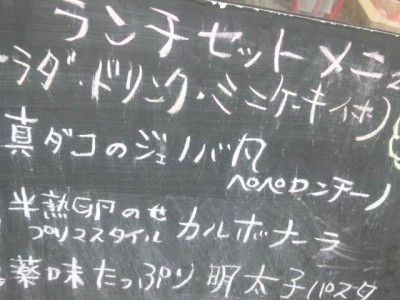 ランチセットメニ
ラダ・ドリンク・ミニケーキ付)
真ダコのジェノバ風
ペペロンチーノ
半熟卵のせ
プリマスタイル カルボナーラ
薬味たっぷり 明太子パスタ